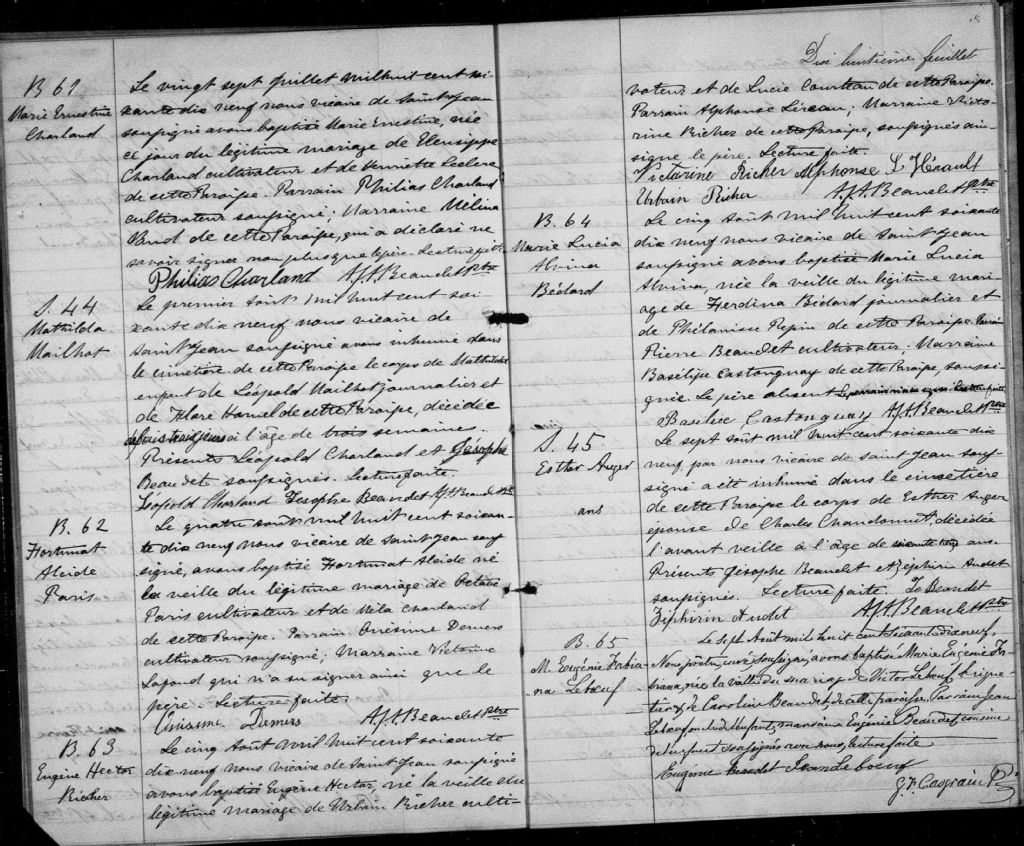 B 61
Marie Ernestine
Charland
Le vingt sept Juillet mil huit cent soi-
xante dix neuf nous vicaire de Saint Jean
soussigné avons baptisé Marie Ernestine, née
ce jour du légitime mariage de Eleusippe
Charland cultivateur et de Henriette Leclerc
de cette Paroisse. Parrain Philias Charland
cultivateur soussigné; Marraine Mélina
de cette Paroisse, qui a déclaré ne
savoir signer non plus que le père. Lecture faite
Philias Charland A.J.A. Beaudet Ptre
S. 44
Mathilda
Mailhot
Le premier Août mil huit cent soi-
xante dix neuf nous vicaire de
Saint Jean soussigné avons inhumé dans
le cimetière de cette Paroisse le corps de Mathilda
enfant de Léopold Mailhot journalier et
de Flore Hamel de cette Paroisse, décédée
depuis trois jours à l'âge de trois semaines.
Présents Léopold Charland et Jésophe
Beaudet soussignés. Lecture faite.
Léopold Charland Jesophe Beaudet A.J.A. Beaudet Ptre
B. 62
Fortunat
Alcide
Paris
Le quatre août mil huit cent soixan-
te dix neuf nous vicaire de Saint Jean sous
signé, avons baptisé Fortunat Alcide né
la veille du légitime mariage de Octave
Paris cultivateur et de Charland
de cette Paroisse. Parrain Onésime Demers
cultivateur soussigné; Marraine Victorine
Lafond qui n'a su signer ainsi que le
père. Lecture faite.
Onisime Demers A.J.A. Beaudet Ptre
B. 63
Eugène Hector
Richer
Le cinq Août mil huit cent soixante
dix neuf nous vicaire de Saint Jean soussigné
avons baptisé Eugène Hector, né la veille du
légitime mariage de Urbain Richer culti-
18
Dix huitième feuillet
vateur et de Lucie Courteau de cette Paroisse.
Parrain Alphonse Léreau; Marraine Victo-
rine Richer de cette Paroisse, soussignés ain-
si que le père. Lecture faite.
Victorine Richer Alphonse L'Hérault
Urbain Richer A.J.A. Beaudet Ptre
B. 64
Marie Lucia
Alvina
Bédard
Le cinq août mil huit cent soixante
dix neuf nous vicaire de Saint Jean
soussigné avons baptisé Marie Lucia
Alvina, née la veille du légitime mari-
age de Ferdina Bédard journalier et
de Philanise Pepin de cette Paroisse. Parrain
Pierre Beaudet cultivateur. Marraine
Basilise Castonguay de cette Paroisse, soussi-
gnée. Le père absent Le parrain n'a su signer. Lecture faite
Basilice Castonguay A.J.A. Beaudet Ptre
S. 45
Esther Auger
ans
Le sept août mil huit cent soixante dix
neuf, par nous vicaire de Saint Jean sous
signé a été inhumé dans le cimetière
de cette Paroisse le corps de Esther Auger
épouse de Charles Chandonnet, décédée
l'avant veille à l'âge de ans.
Présents Jésophe Beaudet et Zéphirin Audet
soussignés. Lecture faite. Jo Beaudet
Ziphirin Audet A.J.A. Beaudet Ptre
B. 65
M. Eugénie Fabia-
na Lebœuf
Le sept Août mil huit cent soixante dix neuf,
Nous prêtre, curé soussigné avons baptisé Marie Eugénie Fa-
biana, née la veille du mariage de Victor Lebœuf
et de Caroline Beaudet de cette paroisse. Parrain Jean
Lebœuf oncle de l'enfant, marraine Eugénie Beaudet cousine
de l'enfant soussignés avec nous, lecture faite
Eugénie Beaudet Jean Leboeuf
G. P. Casgrain Ptre